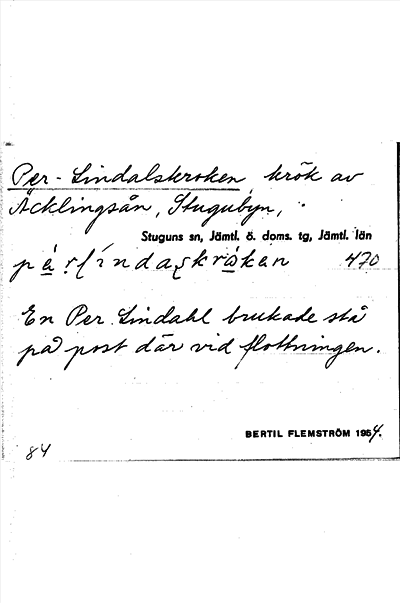 Per-Lindalskroken krök av
Äcklingsån, Stugubyn,
Stuguns sn, Jämtl. ö. doms. tg, Jämtl. län
470
En Per Lindahl brukade stå
på post där vid flottningen.
BERTIL FLEMSTRÖM 1954.
84